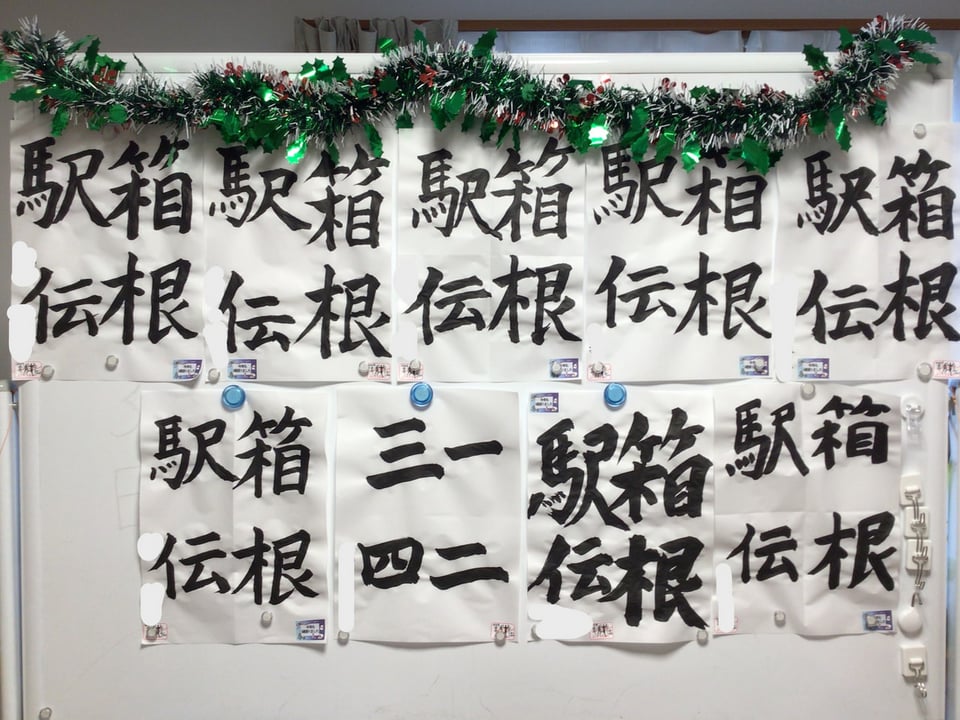 箱根
駅伝
箱根
駅伝
箱根
駅伝
箱根
駅伝
箱根
駅伝
箱根
駅伝
一二
三四
箱根
駅伝
箱根
駅伝